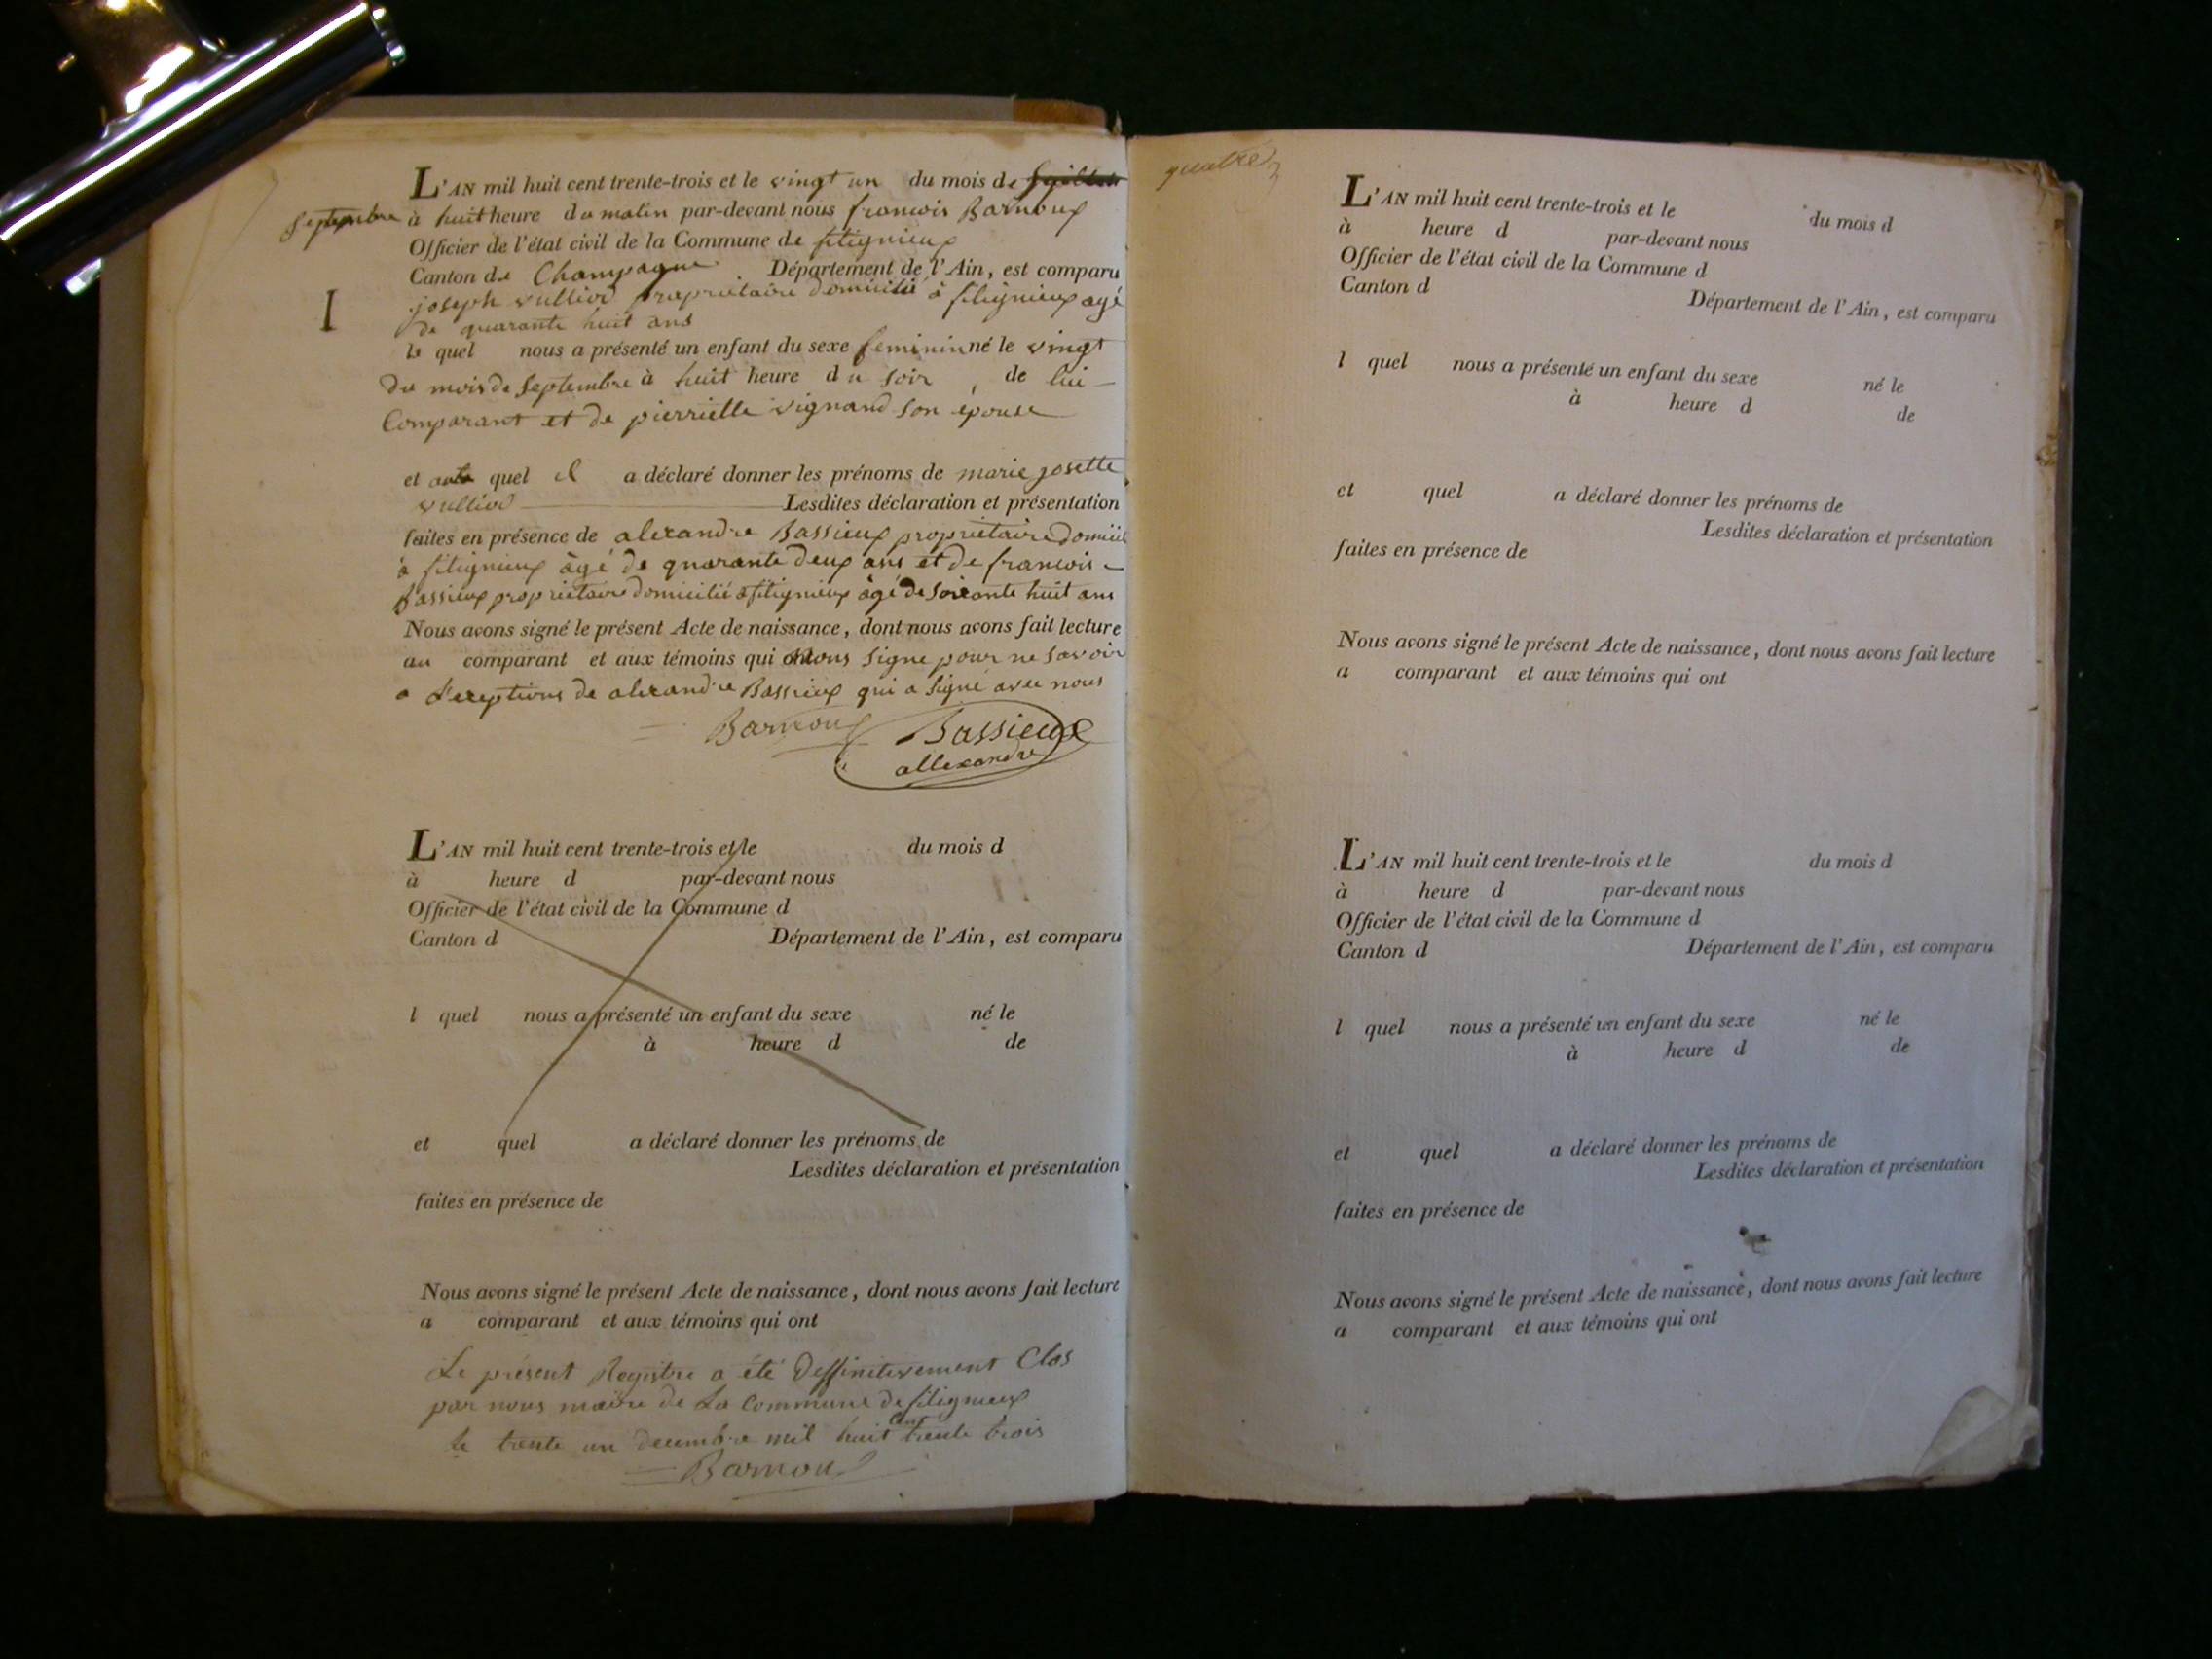 L'AN mil huit cent trente-trois et le vingt un du mois de
septembre à huit heure du matin par-devant nous francois Barnoux
Officier de l'état civil de la Commune de fitignieux
Canton de Champagne Département de l'Ain, est comparu
joseph vulliod propriétaire domicilié à fitignieux agé
de quarante huit ans
le quel nous a présenté un enfant du sexe feminin né le vingt
du mois de Septembre à huit heure du soir, de lui
Comparant et de pierriette vignand son épouse
et quel il a déclaré donner les prénoms de marie josette
vulliod Lesdites déclaration et présentation
faites en présence de alexandre Bassieux propriétaire
à fitignieux âgé de quarante deux ans et de francois
Bassieux propriétaire domicilié a fitignieux âgé de soixante huit ans
Nous avons signé le présent Acte de naissance, dont nous avons fait lecture
au comparant et aux témoins qui signe pour ne savoir
a de alexandre Bassieux qui a signé avec nous
Barnoux Bassieux
allexandre
L'AN mil huit cent trente-trois et le du mois d
à heure d par-devant nous
Officier de l'état civil de la Commune d
Canton d Département de l'Ain, est comparu
l quel nous a présenté un enfant du sexe né le
à heure d de
et quel a déclaré donner les prénoms de
Lesdites déclaration et présentation
faites en présence de
Nous avons signé le présent Acte de naissance, dont nous avons fait lecture
a comparant et aux témoins qui ont
Le présent Registre a été deffinitivement Clos
par nous maire de La Commune de fitignieux
le trente un decembre mil huit cent trente trois
Barnoux
quatre
L'AN mil huit cent trente-trois et le du mois d
à heure d par-devant nous
Officier de l'état civil de la Commune d
Canton d
Département de l'Ain, est comparu
l quel nous a présenté un enfant du sexe né le
à heure d de
et quel a déclaré donner les prénoms de
Lesdites déclaration et présentation
faites en présence de
Nous avons signé le présent Acte de naissance, dont nous avons fait lecture
a comparant et aux témoins qui ont
L'AN mil huit cent trente-trois et le du mois d
à heure d par-devant nous
Officier de l'état civil de la Commune d
Canton d Département de l'Ain, est comparu
l quel nous a présenté un enfant du sexe né le
à heure d de
et quel a déclaré donner les prénoms de
Lesdites déclaration et présentation
faites en présence de
Nous avons signé le présent Acte de naissance, dont nous avons fait lecture
a comparant et aux témoins qui ont